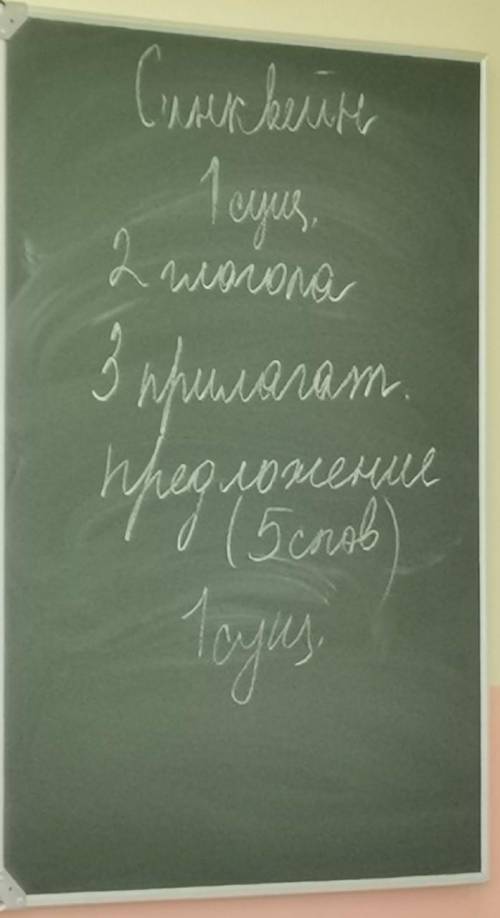 Синквейн
1 сущ.
2 глагола
3 прилагат.
предложение
(5 слов)
1 сущ.